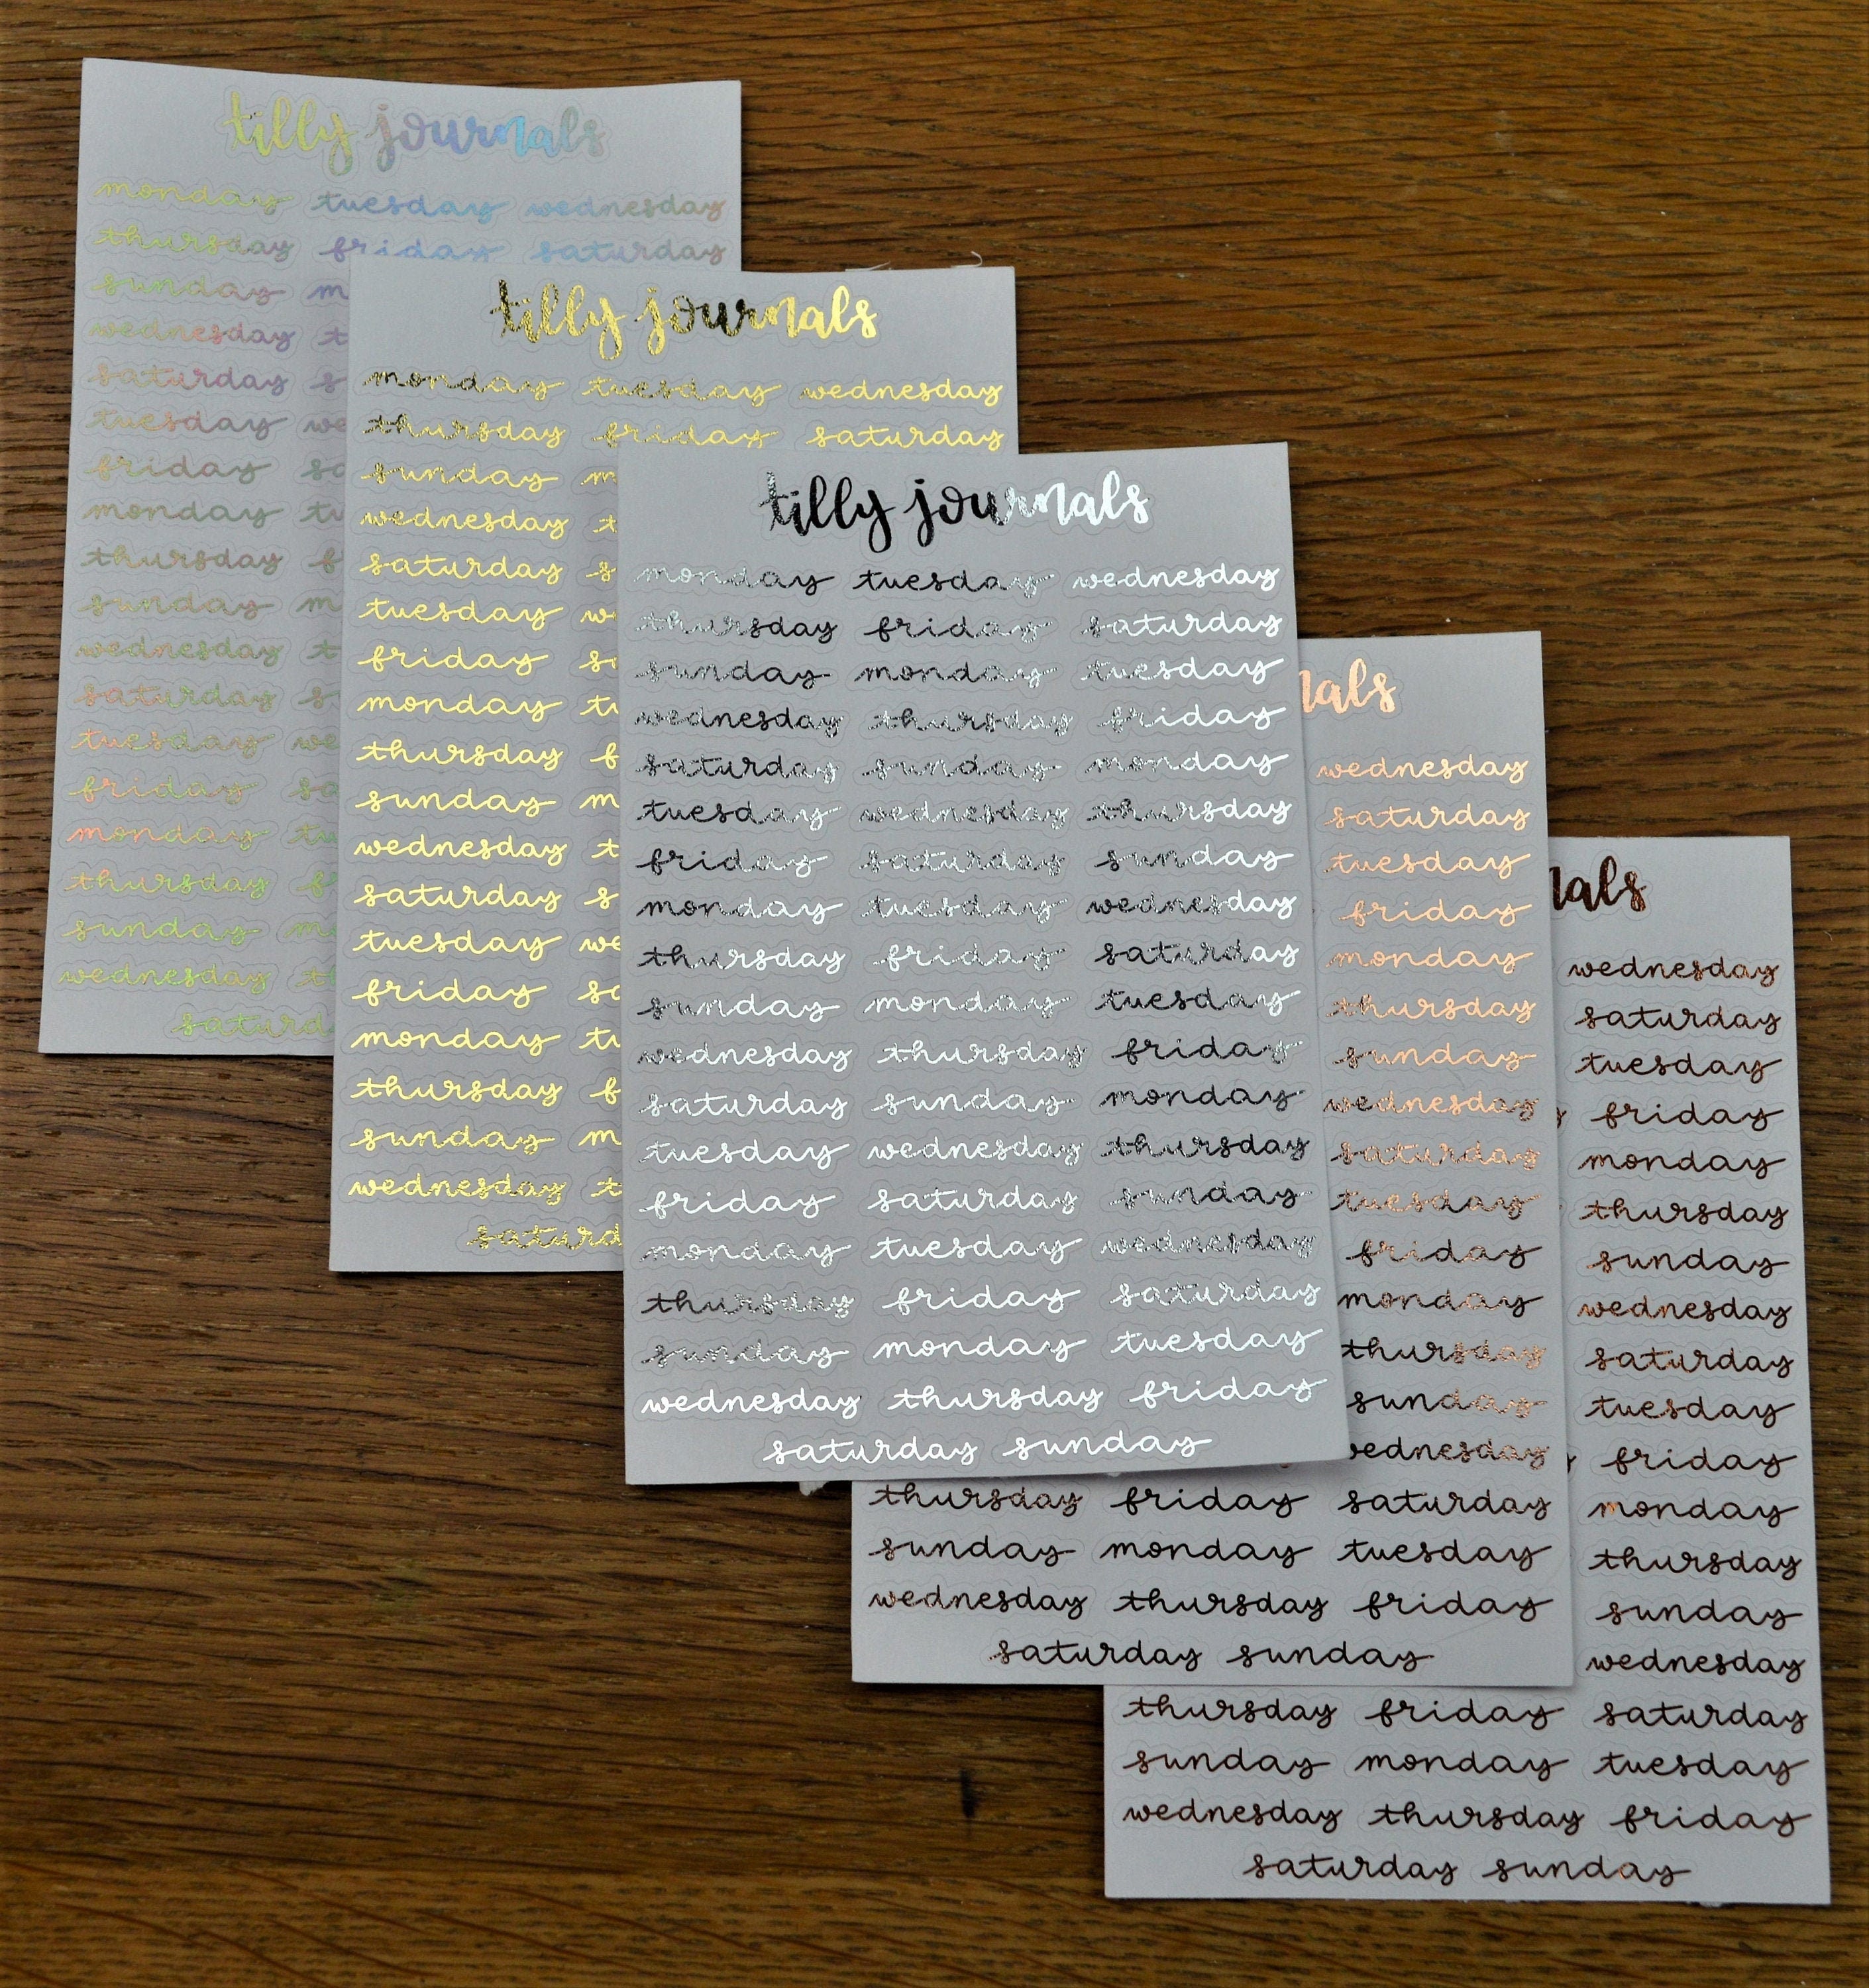 tilly journals
monday tuesday wednesday
thursday friday saturday
sunday
wednesday
saturday
tuesday
friday
monday
thursday
sunday
wednesday
saturday
tuesday
friday
monday
thursday
sunday
wednesday
tilly journals
monday tuesday wednesday
thursday friday saturday
sunday
wednesday
saturday
tuesday
friday
monday
thursday
sunday
wednesday
saturday
tuesday
friday
monday
thursday
sunday
wednesday
tilly journals
monday tuesday wednesday
thursday friday saturday
sunday monday tuesday
wednesday thursday friday
saturday sunday monday
tuesday wednesday thursday
friday saturday sunday
monday tuesday wednesday
thursday friday saturday
sunday monday tuesday
wednesday thursday friday
saturday sunday monday
tuesday wednesday thursday
friday saturday sunday
monday tuesday wednesday
thursday friday saturday
sunday monday tuesday
wednesday thursday friday
saturday sunday
wednesday
saturday
tuesday
friday
monday
thursday
sunday
wednesday
saturday
tuesday
friday
monday
thursday
sunday
wednesday
thursday friday saturday
sunday monday tuesday
wednesday thursday friday
saturday sunday
wednesday
saturday
tuesday
friday
monday
thursday
sunday
wednesday
saturday
tuesday
friday
monday
thursday
sunday
wednesday
thursday friday saturday
sunday monday tuesday
wednesday thursday friday
saturday sunday